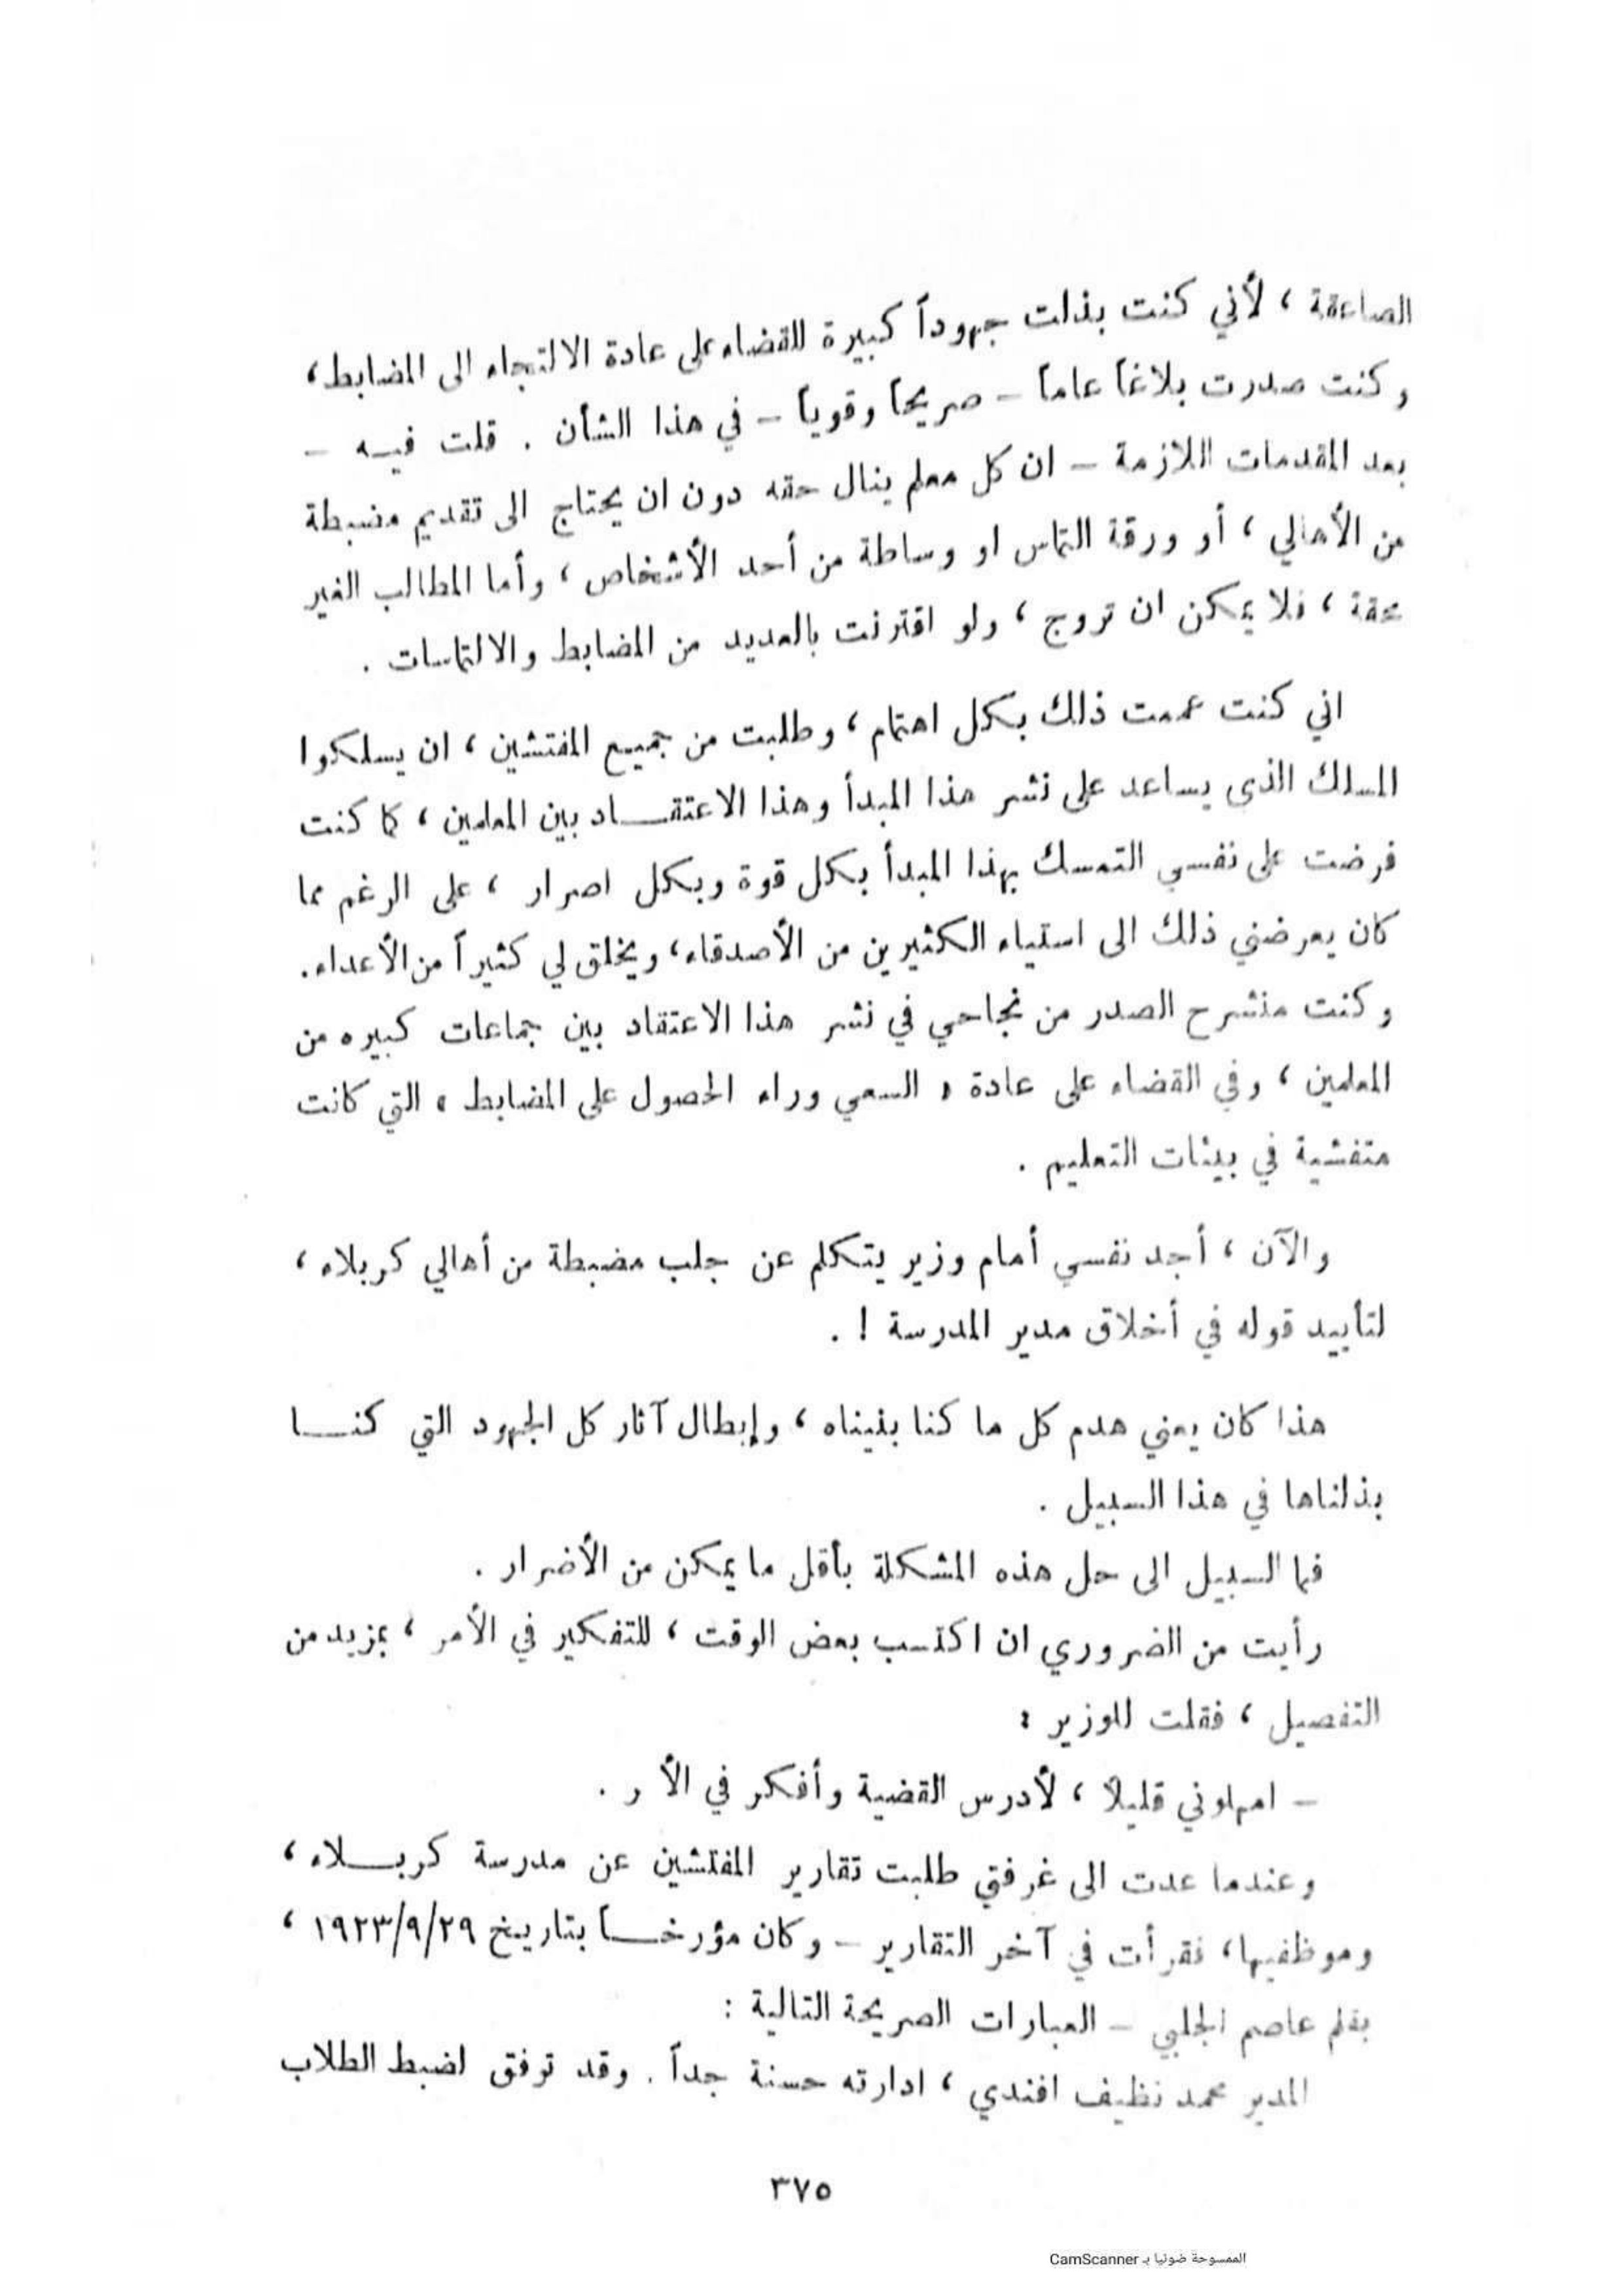 الصاعقة ، لأني كنت بذلت جهوداً كبيرة للقضاء على عادة الالتجاء الى المضابط ،
وكنت صدرت بلاغاً عاماً – صريحاً وقوياً – في هذا الشأن . قلت فيه –
بعد المقدمات اللازمة – ان كل معلم ينال حقه دون ان يحتاج الى تقديم مضبطة
من الأهالي ، أو ورقة التماس او وساطة من أحد الأشخاص ، وأما المطالب الغير
محقة ، فلا يمكن ان تروج ، ولو اقترنت بالعديد من المضابط والالتماسات .
اني كنت عممت ذلك بكل اهتمام ، وطلبت من جميع المفتشين ، ان يسلكوا
المسلك الذى يساعد على نشر هذا المبدأ وهذا الاعتقـــاد بين المعلمين ، كما كنت
فرضت على نفسي التمسك بهذا المبدأ بكل قوة وبكل اصرار ، على الرغم مما
كان يعرضني ذلك الى استياء الكثيرين من الأصدقاء ، ويخلق لي كثيراً من الأعداء .
وكنت منشرح الصدر من نجاحي في نشر هذا الاعتقاد بين جماعات كبيره من
المعلمين ، وفي القضاء على عادة « السعي وراء الحصول على المضابط » التي كانت
متفشية في بيئات التعليم .
والآن ، أجد نفسي أمام وزير يتكلم عن جلب مضبطة من أهالي كربلاء ،
لتأييد قوله في أخلاق مدير المدرسة ! .
هذا كان يعني هدم كل ما كنا بنيناه ، وإبطال آثار كل الجهود التي كنـــا
بذلناها في هذا السبيل .
فما السبيل الى حل هذه المشكلة بأقل ما يمكن من الأضرار .
رأيت من الضروري ان اكتسب بعض الوقت ، للتفكير في الأمر ، بمزيد من
التفصيل ، فقلت للوزير :
– امهلوني قليلاً ، لأدرس القضية وأفكر في الأ ر .
وعندما عدت الى غرفتي طلبت تقارير المفتشين عن مدرسة كربـــلاء ،
وموظفيها ، فقرأت في آخر التقارير – وكان مؤرخـــاً بتاريخ ١٩٢٣/٩/٢٩ ،
بقلم عاصم الجلبي – العبارات الصريحة التالية :
المدير محمد نظيف افندي ، ادارته حسنة جداً . وقد توفق لضبط الطلاب
٣٧٥
الممسوحة ضوئيا بـ CamScanner